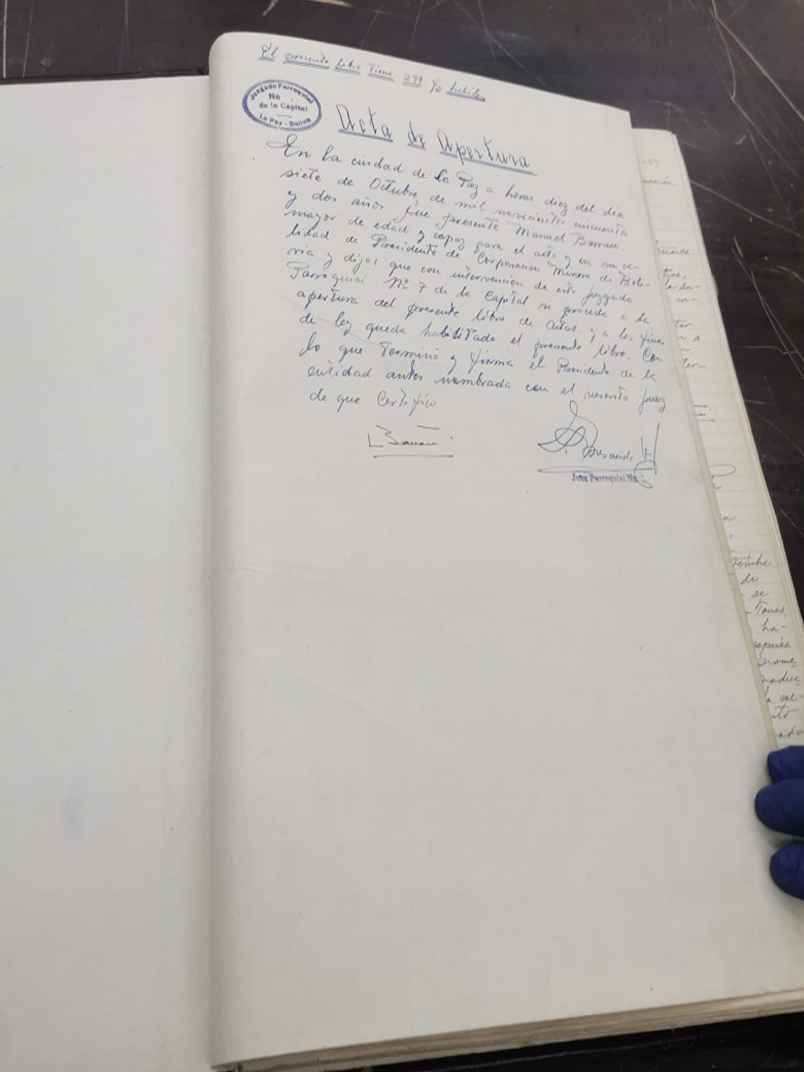 El presente libro tiene 299 fs. útiles
Juzgado Parroquial
No
de la Capital
La Paz - Bolivia
Acta de Apertura
En la ciudad de La Paz a horas diez del dia
siete de Octubre de mil novecientos cincuenta
y dos años fue presente Manuel Barrau
mayor de edad y capaz para el acto y en su ca-
lidad de Presidente de Corporación Minera de Boli-
via y dijo: que con intervención de este juzgado
Parroquial No. 7 de la Capital se procede a la
apertura del presente libro de actas, y a los fines
de ley queda habilitado el presente libro. Con
lo que terminó y firma el Presidente de la
entidad antes nombrada con el suscrito juez
de que certifico
Juez Parroquial No.
octubre
de
se
ha-